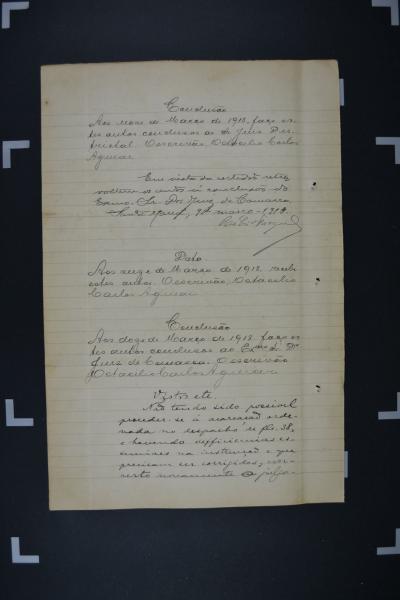 Conclusão
Aos nove de Março de 1918, faço es-
tes autos conclusos ao Sr. Juiz Dis-
trictal. O escrivão, Octacilio Carlos
Aguiar
Em vista da certidão retro,
voltem os autos á conclusão do
Exmo. Sr. Dr. Juiz de Comarca.
9 de março - 1918.
Data
Aos onze de Março de 1918, recebi
estes autos. O escrivão, Octacilio
Carlos Aguiar
Conclusão
Aos doze de Março de 1918, faço es-
tes autos conclusos ao Exmo. Sr. Dr.
Juiz de Comarca. O escrivão
Octacilio Carlos Aguiar
Vistos etc.
Não tendo sido possivel
proceder-se á orde-
nada no despacho de fls. 38,
e havendo defficiencias es-
senciaes na instrucção e que
precisam ser corrigidas, con-
verto novamente o julga-